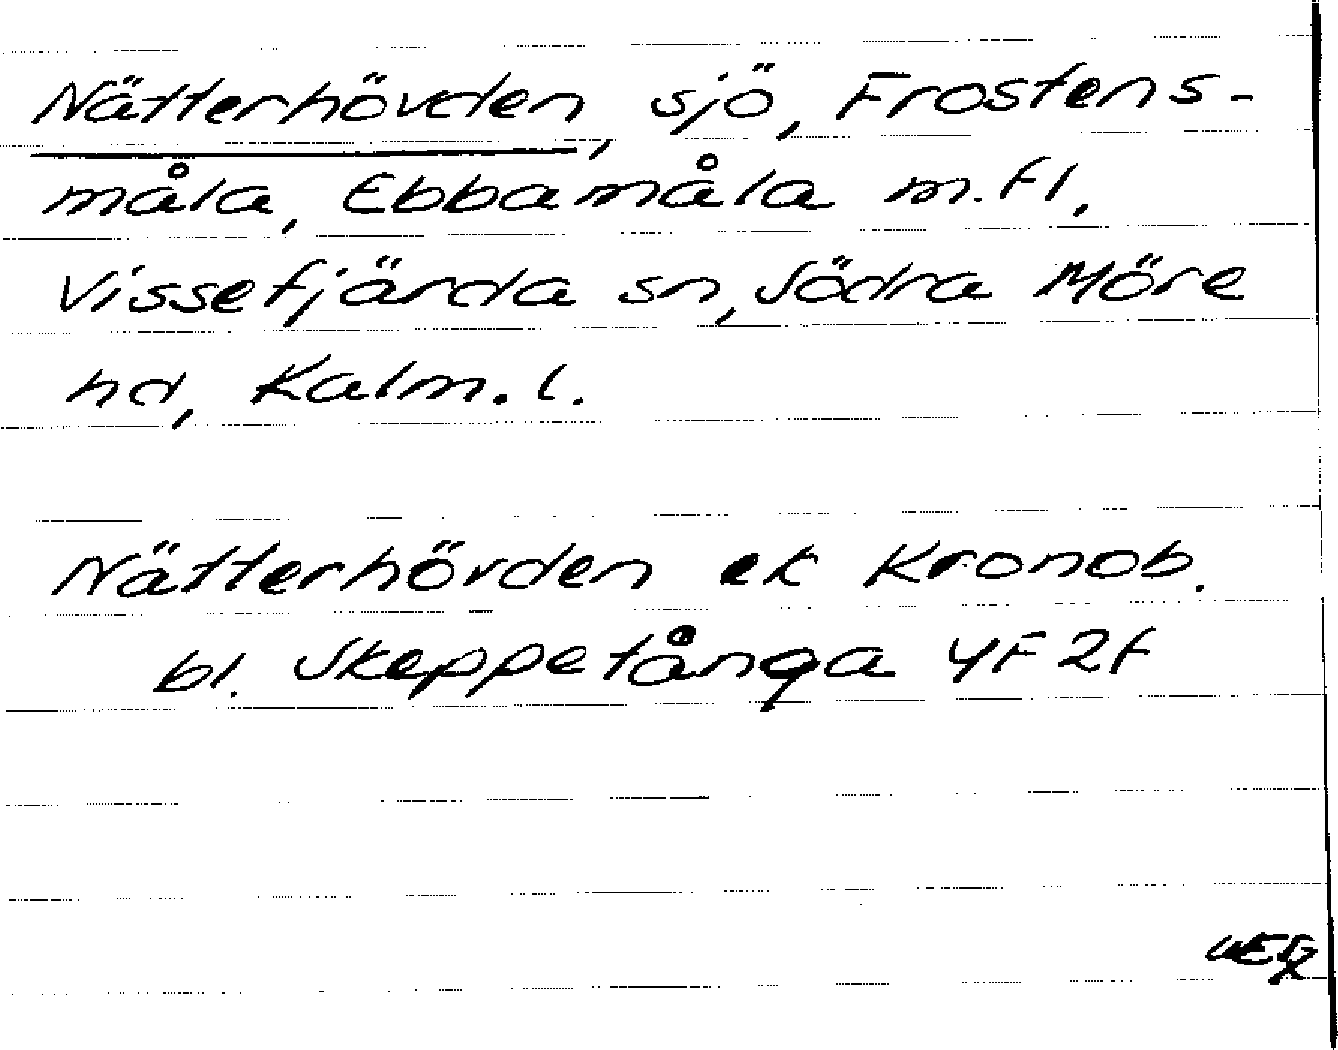 Nätterhövden, sjö, Frostens-
måla, Ebbamåla m.fl,
Vissefjärda sn, Södra Möre
hd, Kalm. l.
Nätterhövden ek Kronob.
bl. Skeppetånga 4F2f